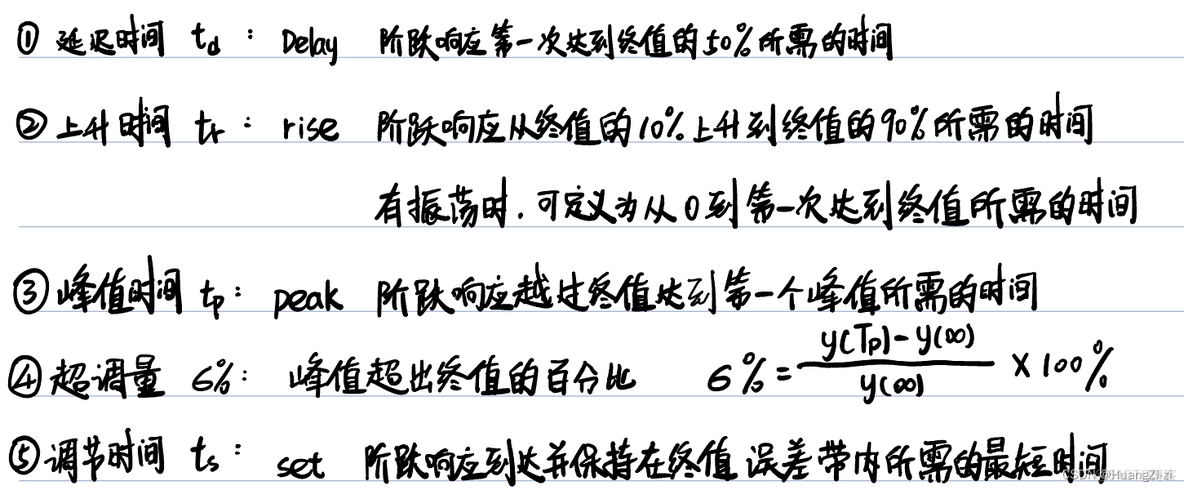 ① 延迟时间 td : Delay 阶跃响应第一次达到终值的50%所需的时间
② 上升时间 tr : rise 阶跃响应从终值的10%上升到终值的90%所需的时间
有振荡时,可定义为从0到第一次达到终值所需的时间
③ 峰值时间 tp : peak 阶跃响应越过终值达到第一个峰值所需的时间
④ 超调量 6%: 峰值超出终值的百分比 6%= y(Tp)-y(∞) / y(∞) ×100%
⑤ 调节时间 ts : set 阶跃响应到达并保持在终值误差带内所需的最短时间